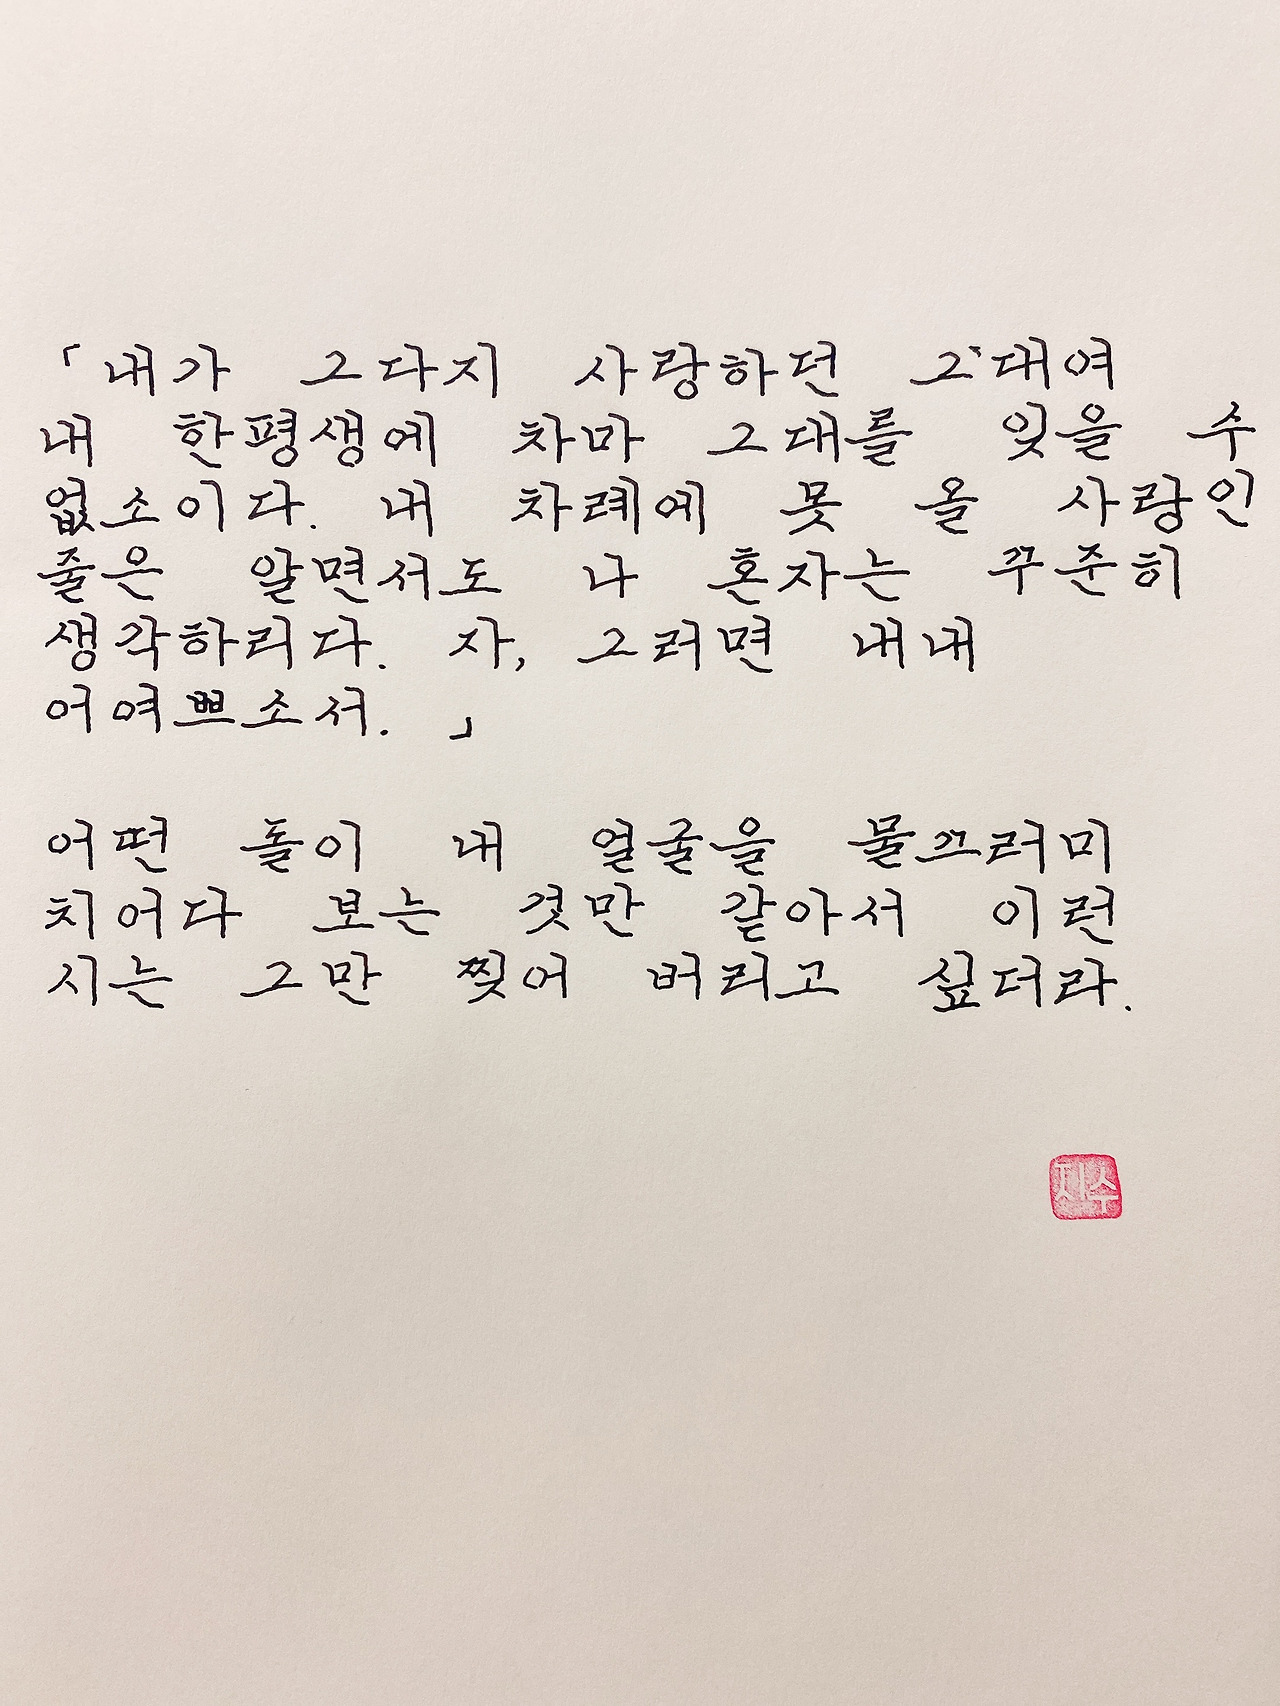 「내가 그다지 사랑하던 그대여
내 한평생에 차마 그대를 잊을 수
없소이다. 내 차례에 못 올 사랑인
줄은 알면서도 나 혼자는 꾸준히
생각하리다. 자, 그러면 내내
어여쁘소서. 」
어떤 돌이 내 얼굴을 물끄러미
치어다 보는 것만 같아서 이런
시는 그만 찢어 버리고 싶더라.
지수